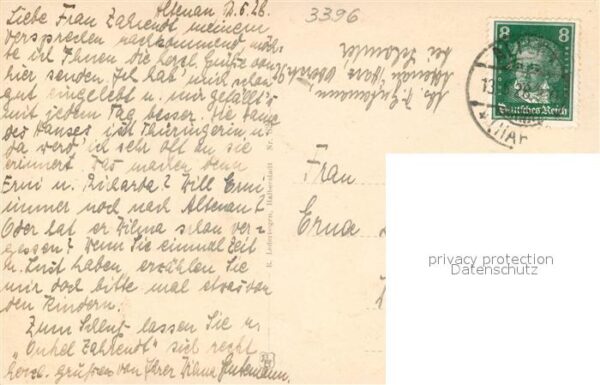 Altenau, D. 6. 28.
Liebe Frau Zahrendt meinem
Versprechen nachkommend möch-
te ich Ihnen die herzl. Grüße von
hier senden. Ich hab' mich schon
gut eingelebt u. mir gefällt's
mit jedem Tag besser. Die Dame
des Hauses ist Thüringerin u.
da werd' ich sehr oft an sie
erinnert. Was machen denn
Erni u. Richarda? Will Erni
immer noch nach Altenau?
Oder hat er Wilma schon ver-
gessen? Wenn Sie einmal Zeit
u. Lust haben, erzählen Sie
mir doch bitte mal etwas von
den Kindern.
Zum Schluß lassen Sie u.
"Onkel Zahrendt" sich recht
herzl. grüßen von Ihrer
3396
8 8
Deutsches Reich
HAR
Frau
Erna
R. Lederbogen, Halberstadt Nr.
privacy protection
Datenschutz